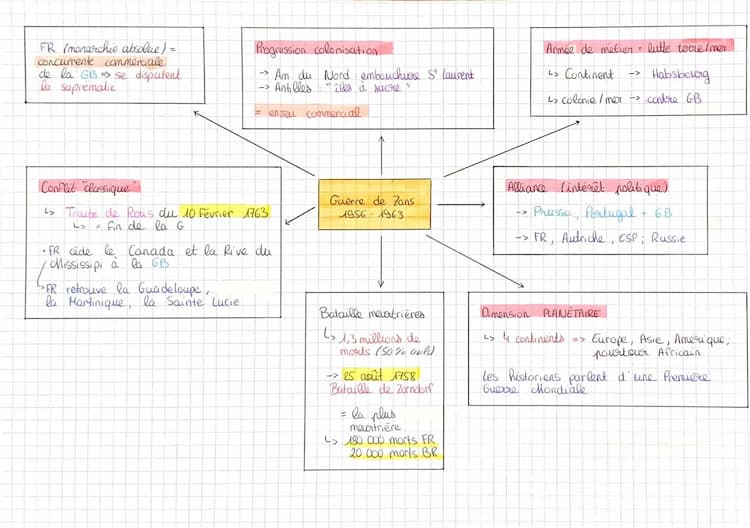 FR (monarchie absolue) =
concurrente commerciale
de la GB => se disputent
la suprematie
Progression colonisation
-> Am du Nord embouchure St Laurent
-> Antilles "îles à sucre"
= enjeu commercial
Armée de métier = lutte terre/mer
↳ Continent -> Habsbourg
↳ colonie/mer -> contre GB
Conflit "classique"
↳ Traité de Paris du 10 Février 1763
↳ = fin de la G
• FR cède le Canada et la Rive du
Mississipi à la GB
↳ FR retrouve la Guadeloupe,
la Martinique, la Sainte Lucie
Guerre de 7ans
1956 - 1963
Alliance (intérêt politique)
-> Prusse, Portugal + GB
-> FR, Autriche, ESP; Russie
Bataille meurtrières
↳ 1,3 millions de
morts (50%
-> 25 août 1758
Bataille de Zorndorf
= la plus
meurtrière
↳ 180 000 morts FR
20 000 morts BR
Dimension PLANÉTAIRE
↳ 4 continents => Europe, Asie, Amérique,
pourtour Africain
Les historiens parlent d'une Première
Guerre Mondiale